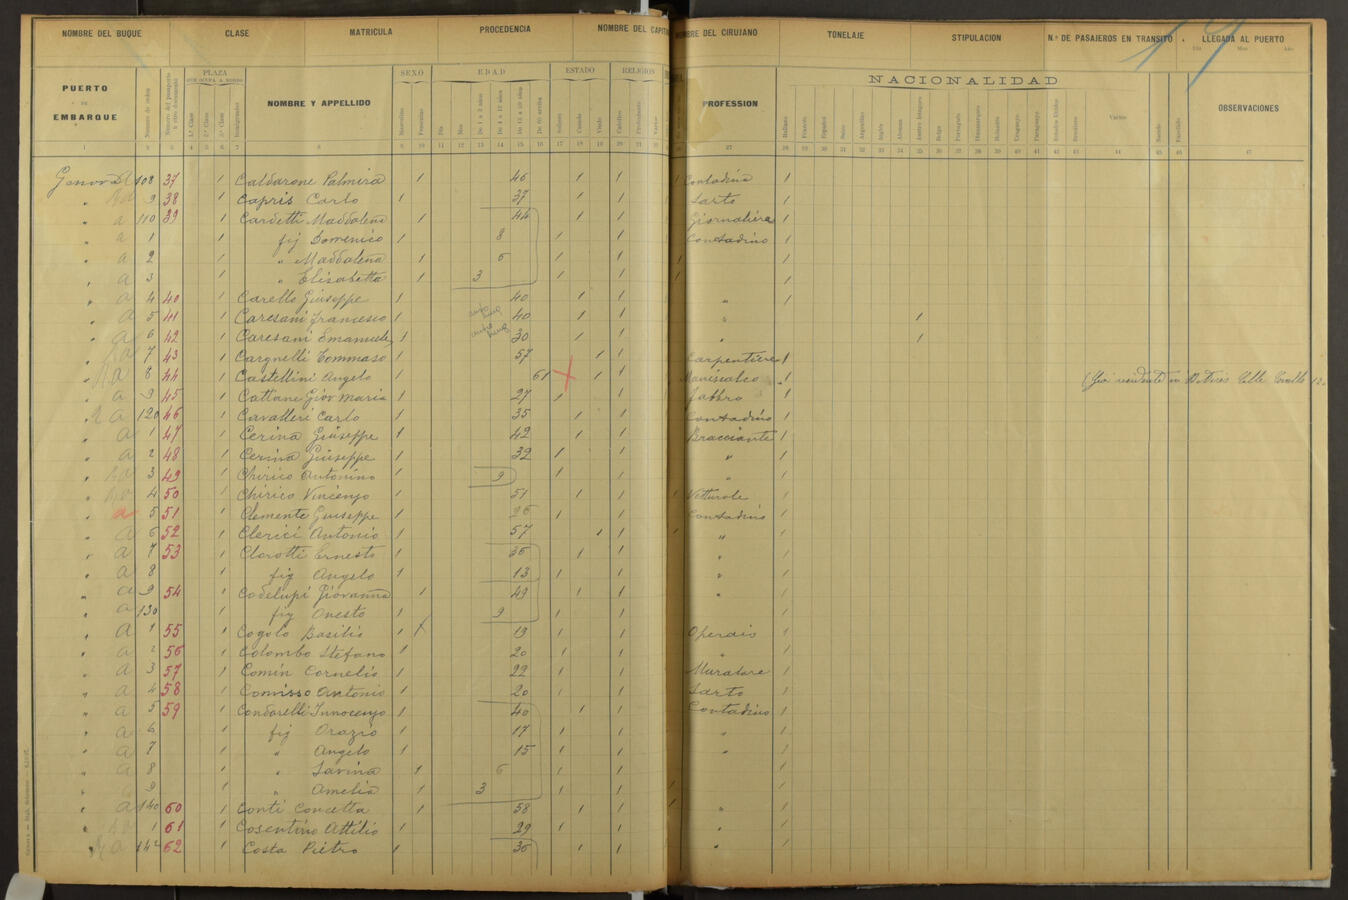 NOMBRE DEL BUQUE CLASE MATRICULA PROCEDENCIA NOMBRE DEL CAPIT NOMBRE DEL CIRUJANO TONELAJE STIPULACION N.º DE PASAJEROS EN TRANSITO LLEGADA AL PUERTO
Dia Mes Año
PUERTO DE EMBARQUE Numero de orden PLAZA QUE OCUPA A BORDO 1.ª Clase 2.ª Clase 3.ª Clase Inmigrantes NOMBRE Y APPELLIDO SEXO Masculino Femenino EDAD ESTADO Soltero Casado Viudo RELIGION Católico Protestante Varias PROFESSION NACIONALIDAD Italiano Francés Español Suizo Argentino Inglés Alemán Austro Húngaro Belga Portugués Dinamarqués Holandés Uruguayo Paraguayo Estados Unidos Brasilero Varias OBSERVACIONES
1 2 3 4 5 6 7 8 9 10 11 12 13 14 15 16 17 18 19 20 21 22 27 28 29 30 31 32 33 34 35 36 37 38 39 40 41 42 43 44 45 46 47
Genova 108 37 1 Caldarone Palmira 1 46 1 1 Contadina 1
" 9 38 1 Capris Carlo 1 37 1 1 Sarto 1
" a 110 39 1 Cardetti Maddalena 1 44 1 Giornaliera 1
" a 1 1 fig Domenico 1 8 1 1 Contadino 1
" a 2 1 " Maddalena 1 6 1 1 1
" a 3 1 " Elisabetta 1 3 1 1 1
" a 4 40 1 Carello Giuseppe 1 40 1 1 " 1
" a 5 41 1 Caresani Francesco 1 40 1 1 " 1
" a 6 42 1 Caresani Emanuele 1 30 1 1 " 1
" a 7 43 1 Cargnelli Tommaso 1 57 1 1 Carpentiere 1
" a 8 44 1 Castellini Angelo 1 61 1 1 Maniscalco 1
" a 9 45 1 Cattane Giov Maria 1 27 1 1 Fabbro 1
" a 120 46 1 Cavalleri Carlo 1 35 1 1 Contadino 1
" a 1 47 1 Cerina Giuseppe 1 42 1 1 Bracciante 1
" a 2 48 1 Cerina Giuseppe 1 32 1 1 " 1
" 3 49 1 Chirico Antonino 1 9 1 1 " 1
" 4 50 1 Chirico Vincenzo 1 51 1 1 Vetturale 1
" a 5 51 1 Clemente Giuseppe 1 26 1 1 Contadino 1
" a 6 52 1 Clerici Antonio 1 57 1 1 " 1
" a 7 53 1 Clorotti Ernesto 1 36 1 1 " 1
" a 8 1 fig Angelo 1 13 1 1 " 1
" a 9 54 1 Codelupi Giovanna 1 49 1 1 " 1
" a 130 1 fig Onesto 1 9 1 1 1
" a 1 55 1 Cogolo Basilio 1 19 1 1 Operaio 1
" a 2 56 1 Colombo Stefano 1 20 1 1 " 1
" a 3 57 1 Comin Cornelio 1 22 1 1 Muratore 1
" a 4 58 1 Comisso Antonio 1 20 1 1 Sarto 1
" a 5 59 1 Condorelli Innocenzo 1 40 1 1 Contadino 1
" a 6 1 fig Orazio 1 17 1 1 " 1
" a 7 1 " Angelo 1 15 1 1 " 1
" a 8 1 " Savina 1 6 1 1 1
" a 9 1 " Amelia 1 3 1 1 1
" a 140 60 1 Conti Concetta 1 58 1 1 " 1
" 1 61 1 Cosentino Attilio 1 29 1 1 " 1
" a 142 62 1 Costa Pietro 1 36 1 1 " 1